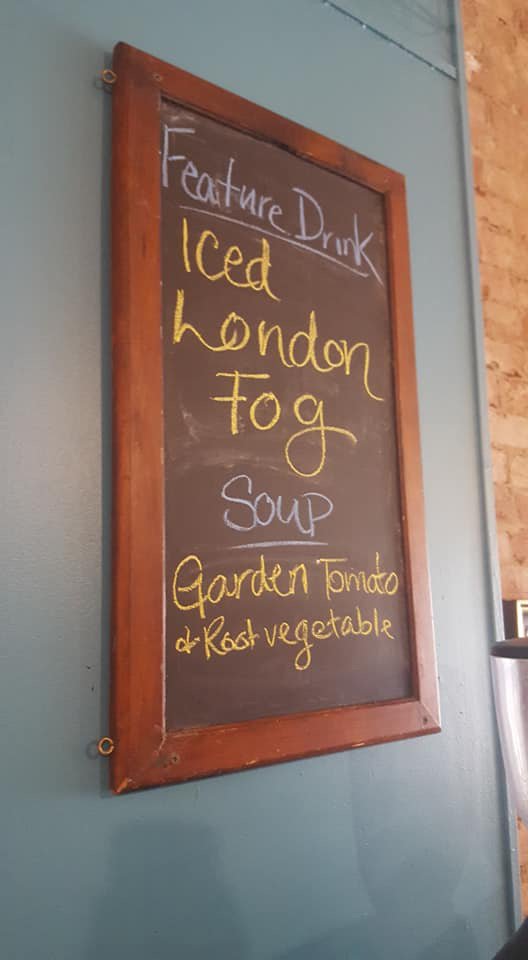 Feature Drink
Iced
London
Fog
Soup
Garden Tomato
& Root vegetable